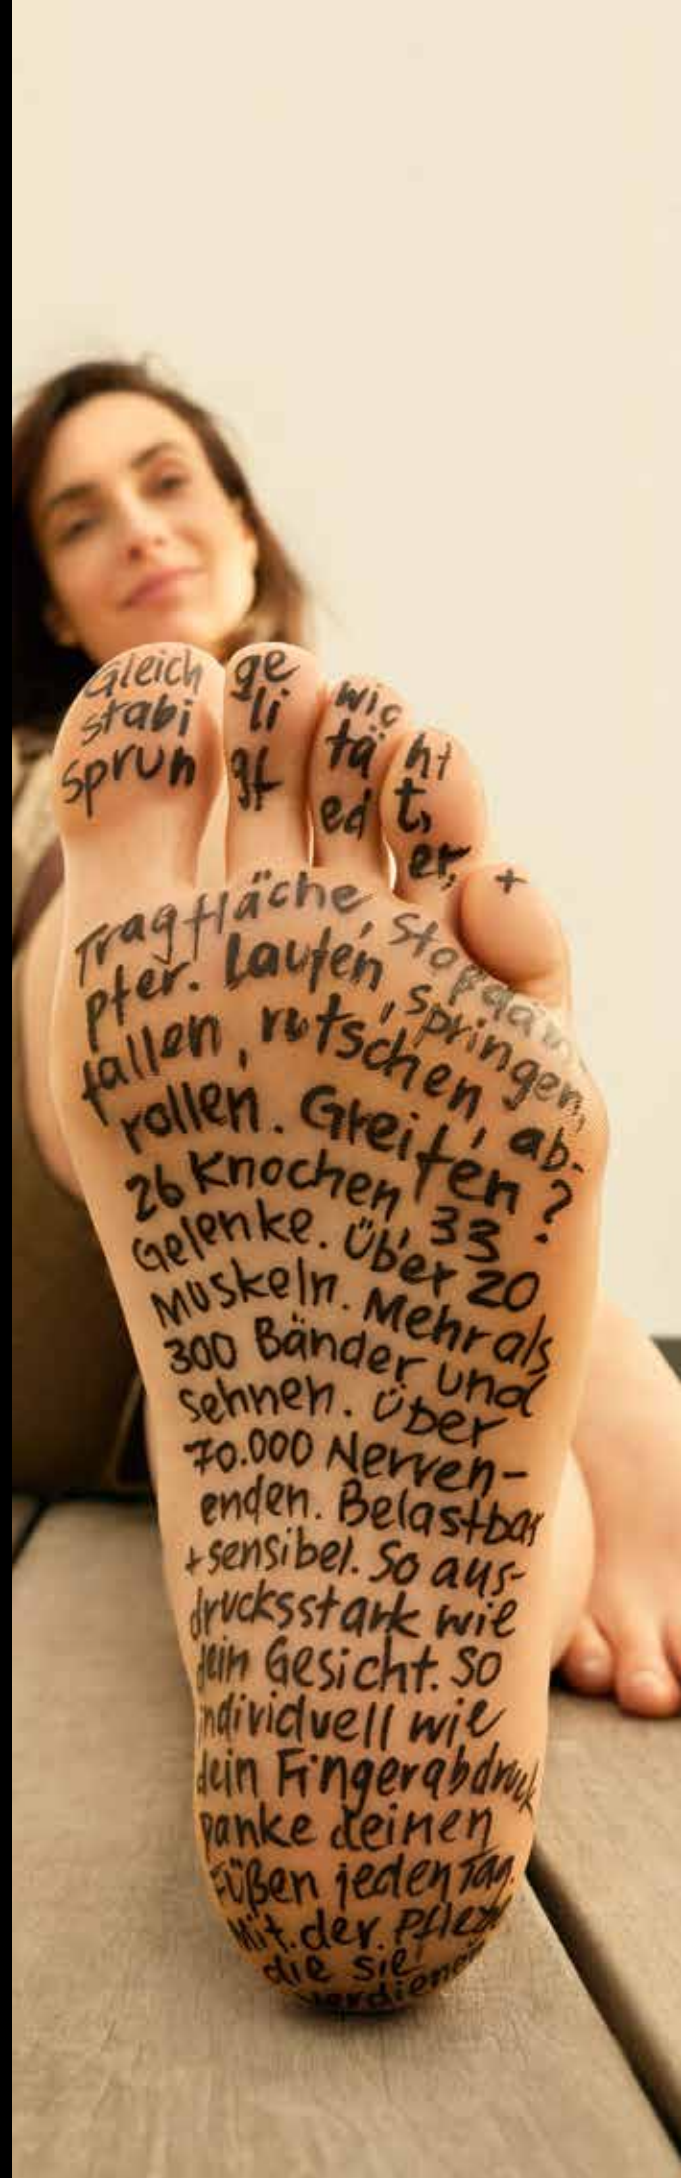 Gleich ge wic ht
stabi li tä t,
sprun gf ed er, +
Tragfläche, Stoßdäm
pfer. Laufen, springen,
fallen, rutschen, ab-
rollen. Greifen?
26 Knochen, 33
Gelenke. Über 20
Muskeln. Mehr als
300 Bänder und
Sehnen. Über
70.000 Nerven-
enden. Belastbar
+ sensibel. So aus-
drucksstark wie
dein Gesicht. So
individuell wie
dein Fingerabdruck
Danke deinen
Füßen jeden Tag.
Mit der Pflege
die sie
verdienen